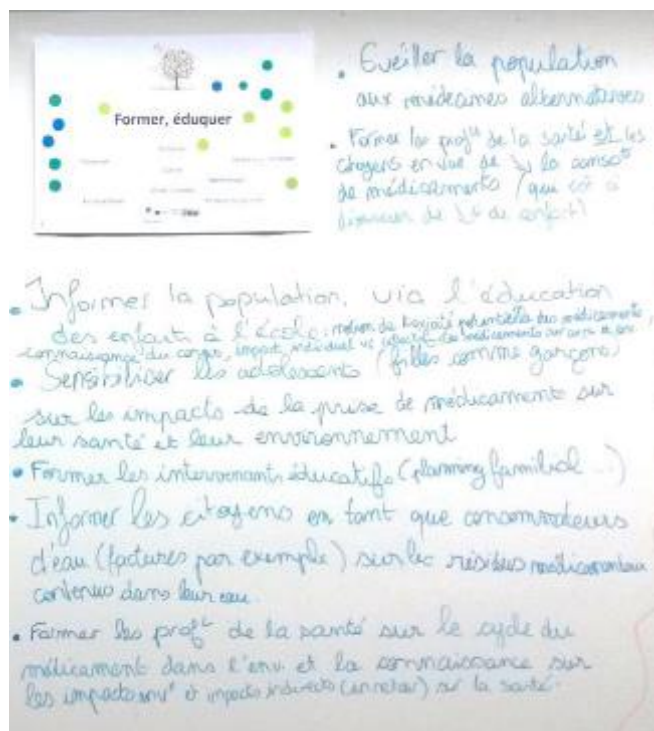 Former, éduquer
• Éveiller la population
aux médecines alternatives
• Former les profˡˢ de la santé et les
citoyens en vue de ↘ la conso°
de médicaments (que ce
• Informer la population, via l'éducation
des enfants à l'école: notion de toxicité potentielle des médicaments,
connaissance du corps, impact individuel vs collectif des médicaments sur corps et env
• Sensibiliser les adolescents (filles comme garçons)
sur les impacts de la prise de médicaments sur
leur santé et leur environnement
• Former les intervenants éducatifs (planning familial ...)
• Informer les citoyens en tant que consommateurs
d'eau (factures par exemple) sur les résidus médicamenteux
contenus dans leur eau.
• Former les profˡˢ de la santé sur le cycle du
médicament dans l'env. et la connaissance sur
les impacts envᵗ et impacts indirects (en retour) sur la santé.